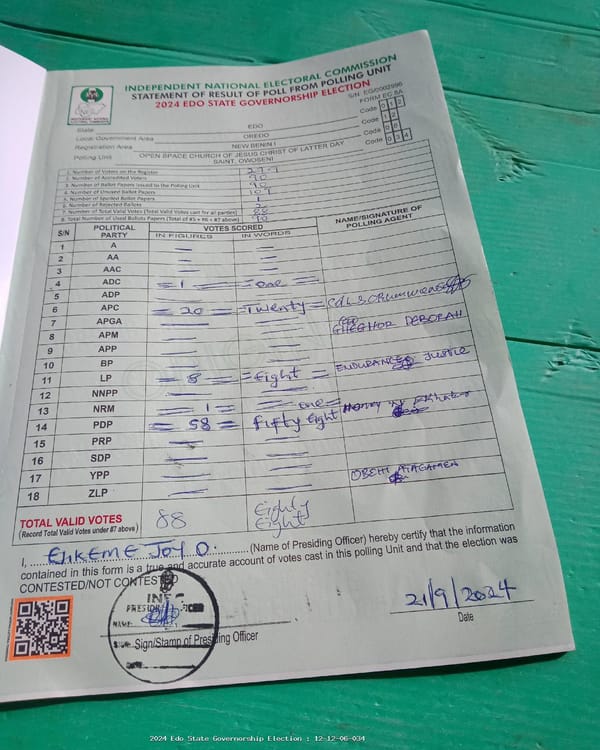 INDEPENDENT NATIONAL ELECTORAL COMMISSION
STATEMENT OF RESULT OF POLL FROM POLLING UNIT
2024 EDO STATE GOVERNORSHIP ELECTION
S/N: EG/0002996
FORM EC 8A
State EDO Code 1 2
Local Government Area OREDO Code 1 2
Registration Area NEW BENIN I Code 0
Polling Unit OPEN SPACE CHURCH OF JESUS CHRIST OF LATTER DAY SAINT, OWOSENI Code 0 3 4
1. Number of Voters on the Register
2. Number of Accredited Voters 90
3. Number of Ballot Papers Issued to the Polling Unit
4. Number of Unused Ballot Papers
5. Number of Spoiled Ballot Papers 1
6. Number of Rejected Ballots
7. Number of Total Valid Votes (Total Valid Votes cast for all parties) 88
8. Total Number of Used Ballots Papers (Total of #5 + #6 + #7 above) 90
S/N POLITICAL PARTY VOTES SCORED NAME/SIGNATURE OF POLLING AGENT
IN FIGURES IN WORDS
1 A
2 AA
3 AAC
4 ADC = 1 = = one =
5 ADP
6 APC = 20 = = Twenty =
7 APGA DEBORAH
8 APM
9 APP
10 BP ENDURANCE JUSTICE
11 LP = 8 = = Eight =
12 NNPP
13 NRM 1 one
14 PDP = 58 = Fifty Eight
15 PRP
16 SDP
17 YPP OBEHI
18 ZLP
TOTAL VALID VOTES 88 Eighty Eight
(Record Total Valid Votes under #7 above)
I, EJIKEME JOY O. (Name of Presiding Officer) hereby certify that the information
contained in this form is a true and accurate account of votes cast in this polling Unit and that the election was
CONTESTED/NOT CONTESTED
INEC
PRESIDING
NAME:
Sign/Stamp of Presiding Officer
21/9/2024
Date
2024 Edo State Governorship Election : 12-12-06-034